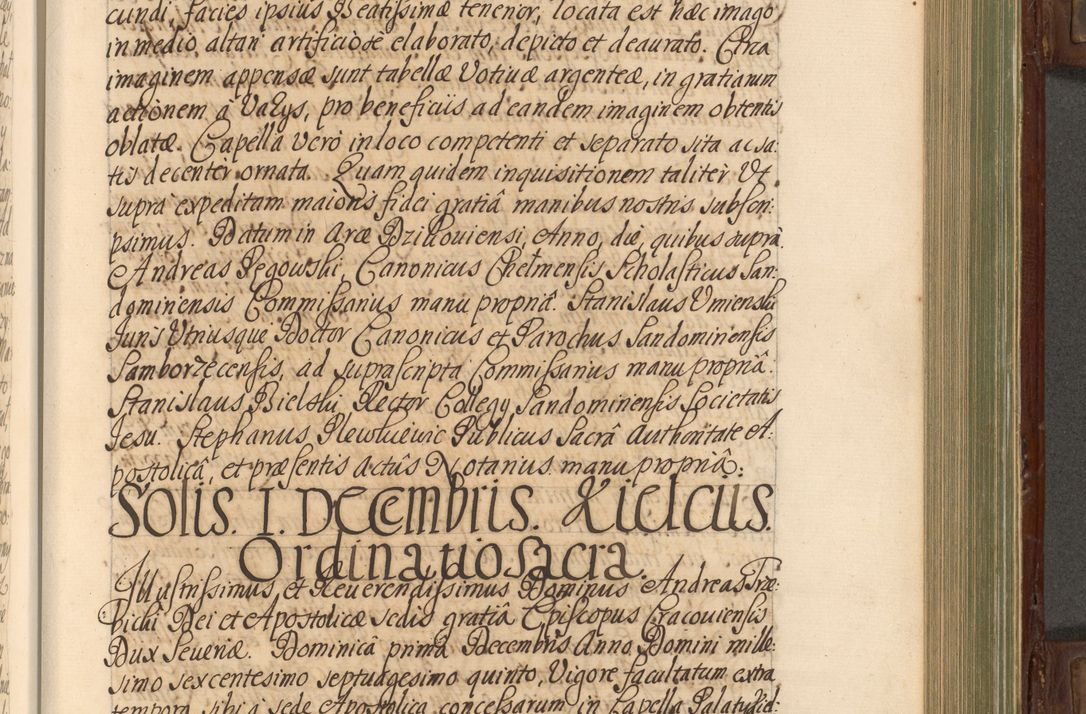 cundi, facies ipsius Beatissimæ tenenor, locata est hæc imago
in medio altari artificiose elaborato, depicto et deaurato. Circa
imaginem appensæ sunt tabellæ Votiuæ argenteæ, in gratiarum
actionem à Varys, pro beneficiis ad eandem imaginem obtentis
oblatæ. Capella Verò in loco competenti et separato sita ac sa-
tis decenter ornata. Quam quidem inquisitionem taliter Vt
supra expeditam maioris fidei gratiâ manibus nostris subscri-
psimus. Datum in Arce Dzikouiensi, Anno, die, quibus suprà.
Andreas Regowski, Canonicus Chelmensis Scholasticus San-
dominensis Commissarius manu propriâ. Stanislaus Vmienski
Juris Vtriusque Doctor Canonicus et Parochus Sandominensis
Samborzecensis, ad suprascripta Commissarius manu propriâ.
Stanislaus Bielski Rector Collegy Sandominensis Societatis
Jesu. Stephanus Publicus Sacrâ Authoritate A-
postolicâ, et præsentis actûs Notarius manu propriâ.
Solis. I. Decembris. Kielciis.
Ordinatio Sacra.
Illustrissimus et Reuerendissimus Dominus Andreas Trze-
bicki Dei et Apostolicæ sedis gratiâ Episcopus Cracouiensis
Dux Seueriæ. Dominicâ primâ Decembris Anno Domini mille-
simo sexcentesimo septuagesimo quinto, Vigore facultatum extra
tempora sibi à sede Apostolica concessarum in Capella Palatii